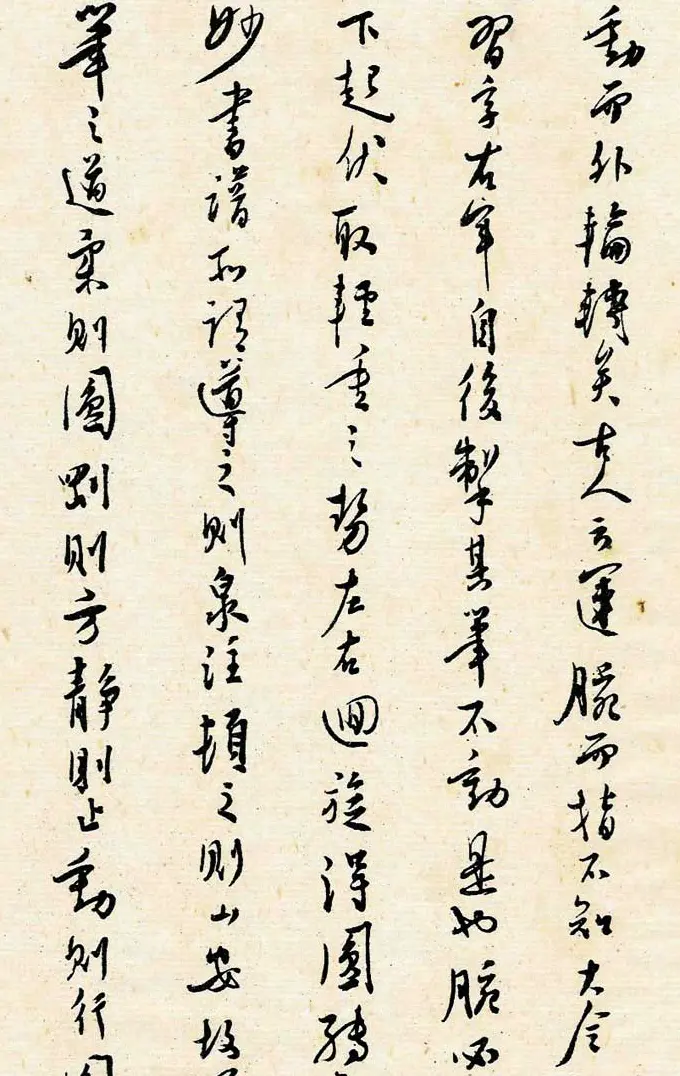 動而外輪轉矣古人云運腕而指不知大令
習字右軍自後掣其筆不動是也腕必
下起伏取輕重之勢左右迴旋得圓轉
妙書譜所謂導之則泉注頓之則山安故
筆之道柔則圓剛則方靜則止動則行圓